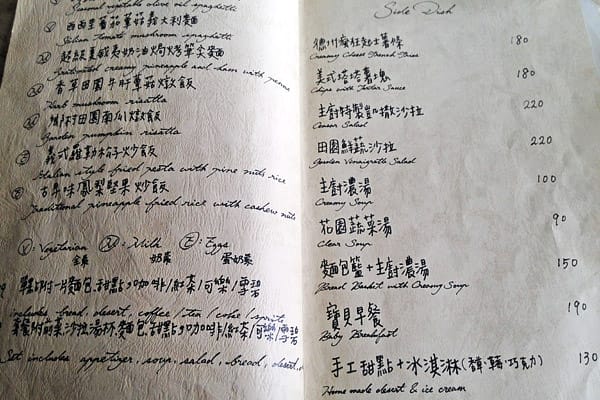 vegetable olive oil spaghetti
西西里蕃茄蘑菇義大利麵
Italian tomato mushroom spaghetti
超級夏威夷奶油焗烤筆尖麵
Traditional creamy pineapple and ham with penne
香草田園牛肝蕈菇燉飯
Herb mushroom risotto
田園南瓜燉飯
Garden pumpkin risotto
義式羅勒松子炒飯
Italian style fried pesto with pine nuts rice
古早味鳳梨堅果炒飯
Traditional pineapple fried rice with cashew nuts
V: Vegetarian M: Milk E: Eggs
全素 奶素 蛋奶素
附一片麵包.甜點.咖啡/紅茶/可樂/雪碧
includes bread, desert, coffee / tea / coke / sprite
套餐附前菜沙拉湯杯麵包.甜點.咖啡/紅茶/可樂/雪碧
Set includes appetizer, soup, salad, bread, desert,
Side Dish
德州瘋狂起士薯條 180
Creamy Cheese French Fries
美式塔塔薯塊 180
Chips with Tartar Sauce
主廚特製凱撒沙拉 220
Ceasar Salad
田園鮮蔬沙拉 220
Garden Vinaigrette Salad
主廚濃湯 100
Creamy Soup
花園蔬菜湯 90
Clear Soup
麵包籃+主廚濃湯 150
Bread Basket with Creamy Soup
寶貝早餐 190
Baby Breakfast
手工甜點+冰淇淋(香草.巧克力) 130
Home made desert & ice cream